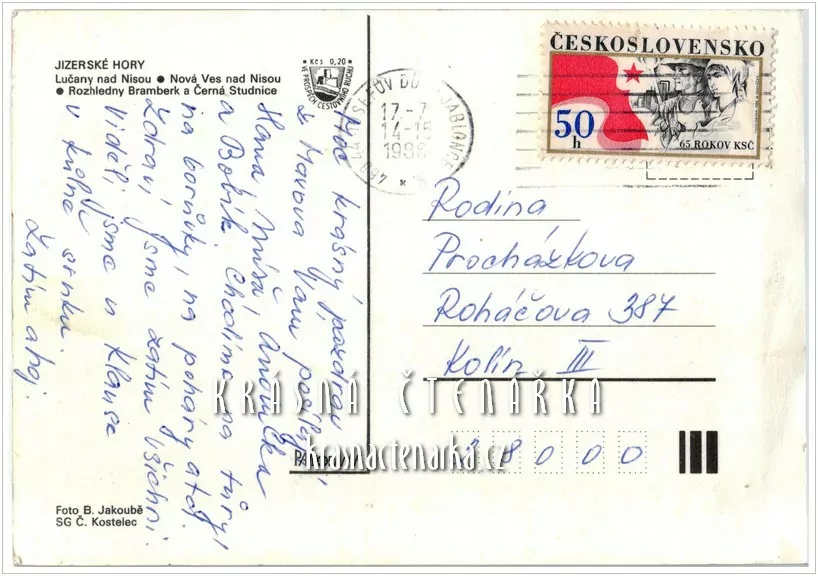 JIZERSKÉ HORY
Lučany nad Nisou ● Nová Ves nad Nisou
● Rozhledny Bramberk a Černá Studnice
Kčs 0,20
VE PROSPĚCH CESTOVNÍHO RUCHU
JOSEFŮV DŮL U JABLONCE
17-7
14-15
ČESKOSLOVENSKO
50
h
65 ROKOV KSČ
Moc krásný pozdrav
z Maxova Vám posílají
Hana, Míša, Andulka
a Bobík. Chodíme na túry,
na borůvky, na poháry atd.
Zdraví jsme zatím všichni.
Viděli jsme u Klause
v kůlně srnku.
Zatím ahoj.
Rodina
Procházkova
Roháčova 387
Kolín III
28000
KRÁSNÁ ČTENÁŘKA
krasnactenarka.cz
Foto B. Jakoubě
SG Č. Kostelec